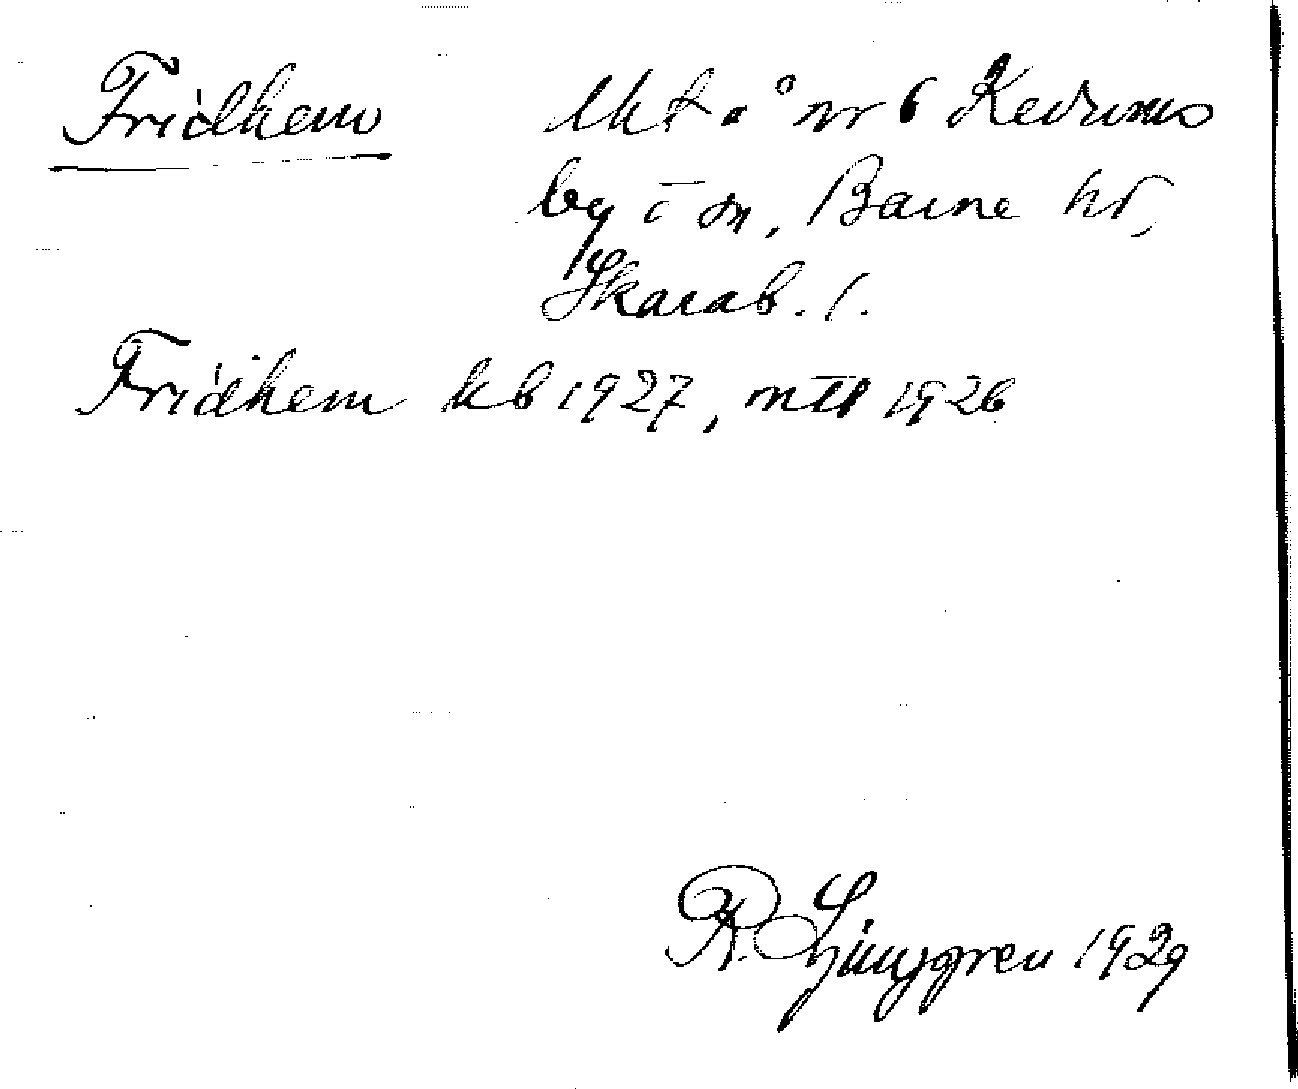 Fridhem lht å nr 6 Kedums
by i sn, Barne hd,
Skarab. l.
Fridhem kb 1927, mtl 1926
R. Ljunggren 1929